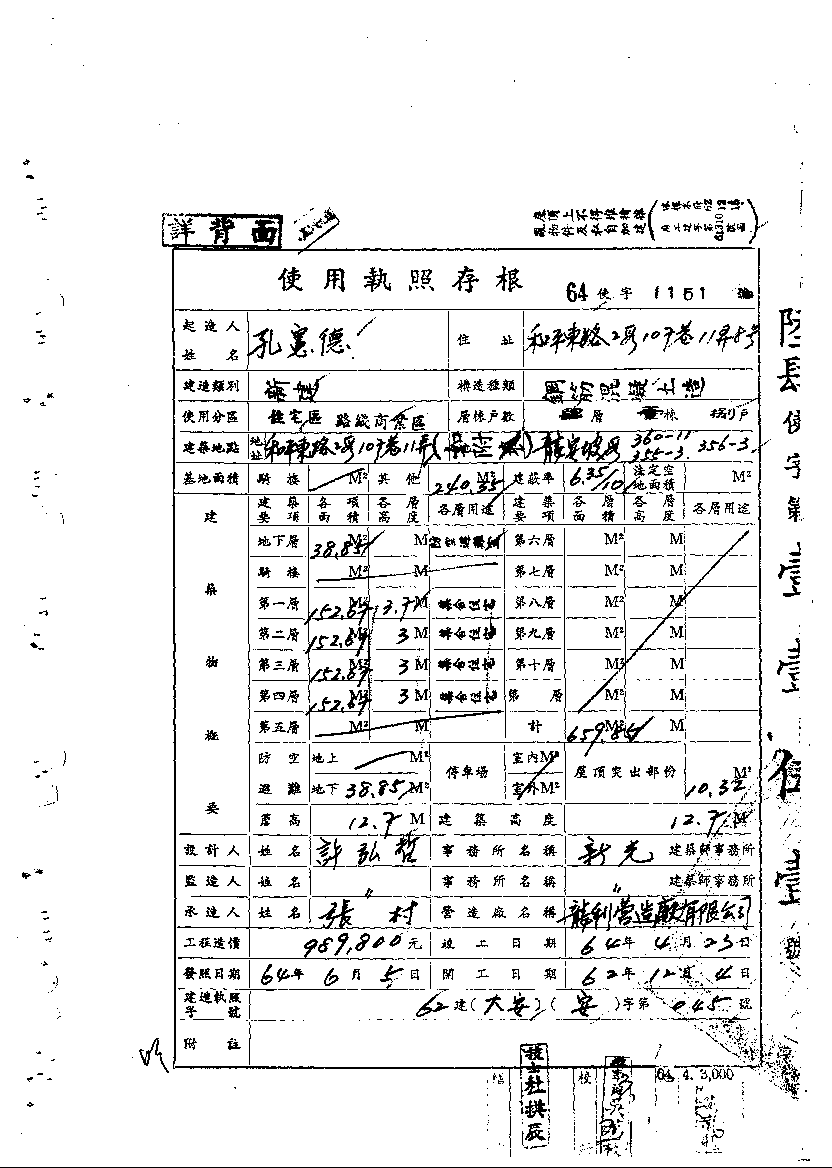 詳背面
屋頂上不得堆積雜
亂物件及私自加建
使用執照存根
64 使字 1151 號
起造人姓名 孔憲德 住址 和平東路2段107巷11弄8号
建造類別 新建 構造種類 鋼筋混凝土造
使用分區 住宅區 路線商業區 層棟戶數 層 棟 戶
建築地點 地址 和平東路2段107巷11弄 龍安坡段 360-11 355-3 356-3
基地面積 騎樓 M² 其他 240.35 M² 建蔽率 6.35/10 法定空地面積 M²
建築物概要
建築要項 各項面積 各層高度 各層用途 建築要項 各層面積 各層高度 各層用途
地下層 38.85 M² M 第六層 M² M
騎樓 M² M 第七層 M² M
第一層 152.67 M² 3.7 M 集合住宅 第八層 M² M
第二層 152.67 M² 3 M 集合住宅 第九層 M² M
第三層 152.67 M² 3 M 集合住宅 第十層 M² M
第四層 152.67 M² 3 M 集合住宅 第 層 M² M
第五層 M² M 計 M² M
防空避難 地上 M² 停車場 室內 M² 屋頂突出部份 10.32 M²
地下 38.85 M² 室外 M²
簷高 12.7 M 建築高度 12.7 M
設計人 姓名 許弘哲 事務所名稱 新光 建築師事務所
監造人 姓名 〃 事務所名稱 〃 建築師事務所
承造人 姓名 張村 營造廠名稱 龍利營造廠有限公司
工程造價 989,800元 竣工日期 64年4月23日
發照日期 64年6月5日 開工日期 62年12月4日
建造執照字號 62建(大安)(安)字第045號
附註
技士杜拱辰
校
64. 4. 3,000
使字第
號